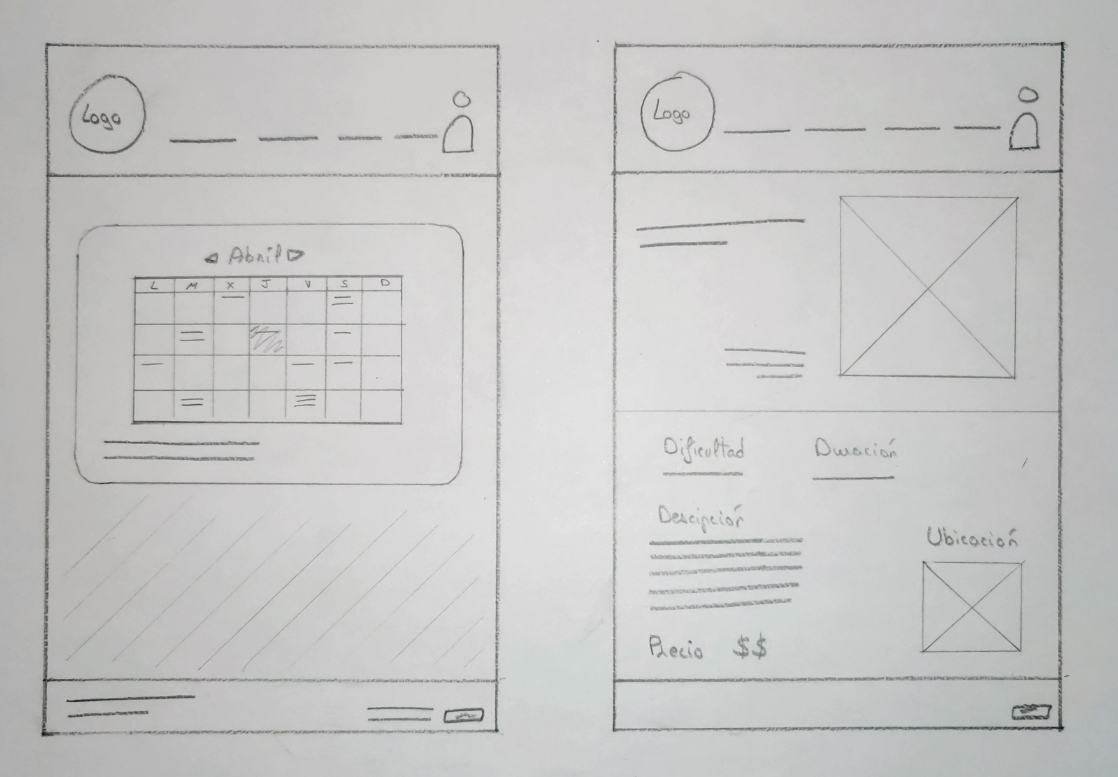 Logo
Abril
L M X J V S D
Logo
Dificultad Duración
Descipción
Ubicación
Precio $$